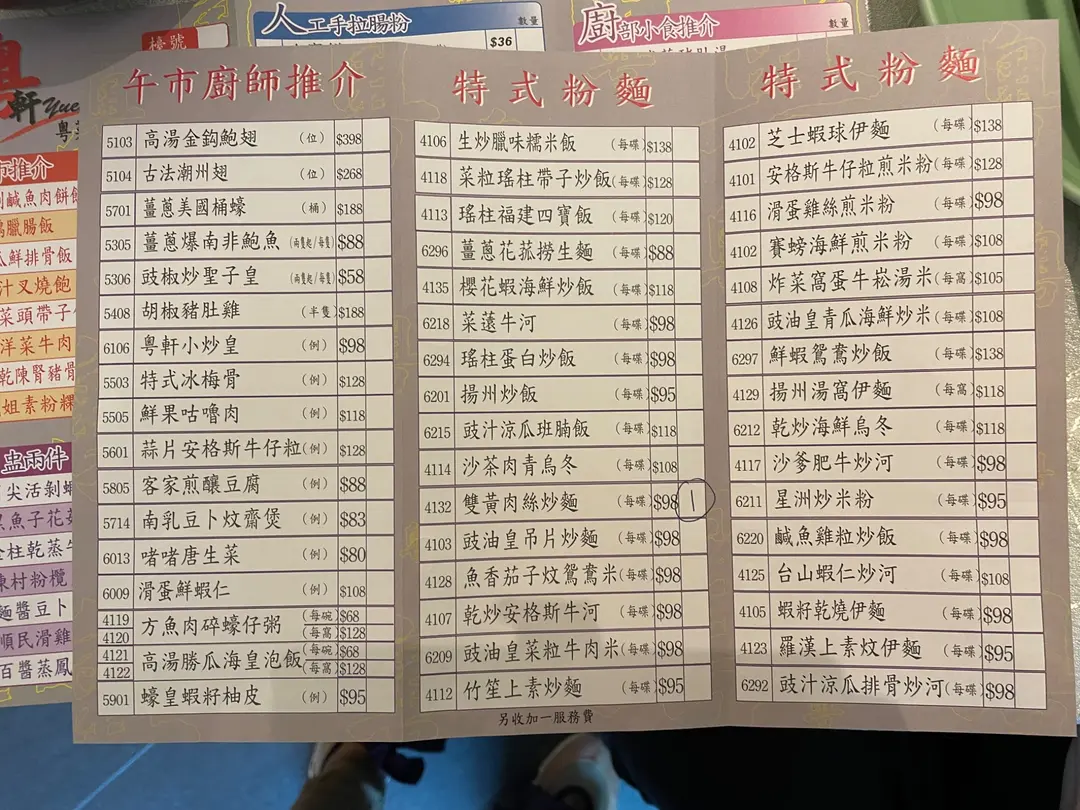 人工手拉腸粉
數量
$36
廚部小食推介
數量
檯號
軒
Yue
粵
市推介
鹹魚肉餅飯
臘腸飯
鮮排骨飯
汁叉燒飽
菜頭帶子
洋菜牛肉
乾陳腎豬骨
姐素粉粿
盅兩件
尖活剝蝦
魚子花菇
柱乾蒸牛
東村粉欖
麵醬豆卜
順民滑雞
百醬蒸鳳
午市廚師推介
5103 高湯金鈎鮑翅 (位) $398
5104 古法潮州翅 (位) $268
5701 薑蔥美國桶蠔 (桶) $188
5305 薑蔥爆南非鮑魚 (兩隻起/每隻) $88
5306 豉椒炒聖子皇 (兩隻起/每隻) $58
5408 胡椒豬肚雞 (半隻) $188
6106 粵軒小炒皇 (例) $98
5503 特式冰梅骨 (例) $128
5505 鮮果咕嚕肉 (例) $118
5601 蒜片安格斯牛仔粒 (例) $128
5805 客家煎釀豆腐 (例) $88
5714 南乳豆卜炆齋煲 (例) $83
6013 啫啫唐生菜 (例) $80
6009 滑蛋鮮蝦仁 (例) $108
4119 方魚肉碎蠔仔粥 (每碗) $68
4120 (每窩) $128
4121 高湯勝瓜海皇泡飯 (每碗) $68
4122 (每窩) $128
5901 蠔皇蝦籽柚皮 (例) $95
特式粉麵
4106 生炒臘味糯米飯 (每碟) $138
4118 菜粒瑤柱帶子炒飯 (每碟) $128
4113 瑤柱福建四寶飯 (每碟) $120
6296 薑蔥花菰撈生麵 (每碟) $88
4135 櫻花蝦海鮮炒飯 (每碟) $118
6218 菜薳牛河 (每碟) $98
6294 瑤柱蛋白炒飯 (每碟) $98
6201 揚州炒飯 (每碟) $95
6215 豉汁涼瓜班腩飯 (每碟) $118
4114 沙茶肉青烏冬 (每碟) $108
4132 雙黃肉絲炒麵 (每碟) $98 1
4103 豉油皇吊片炒麵 (每碟) $98
4128 魚香茄子炆鴛鴦米 (每碟) $98
4107 乾炒安格斯牛河 (每碟) $98
6209 豉油皇菜粒牛肉米 (每碟) $98
4112 竹笙上素炒麵 (每碟) $95
另收加一服務費
特式粉麵
4102 芝士蝦球伊麵 (每碟) $138
4101 安格斯牛仔粒煎米粉 (每碟) $128
4116 滑蛋雞絲煎米粉 (每碟) $98
4102 賽螃海鮮煎米粉 (每碟) $108
4108 炸菜窩蛋牛崧湯米 (每窩) $105
4126 豉油皇青瓜海鮮炒米 (每碟) $108
6297 鮮蝦鴛鴦炒飯 (每碟) $138
4129 揚州湯窩伊麵 (每窩) $118
6212 乾炒海鮮烏冬 (每碟) $118
4117 沙爹肥牛炒河 (每碟) $98
6211 星洲炒米粉 (每碟) $95
6220 鹹魚雞粒炒飯 (每碟) $98
4125 台山蝦仁炒河 (每碟) $108
4105 蝦籽乾燒伊麵 (每碟) $98
4123 羅漢上素炆伊麵 (每碟) $95
6292 豉汁涼瓜排骨炒河 (每碟) $98